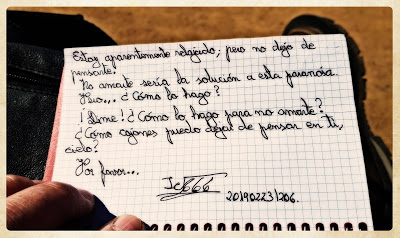 Estoy aparentemente relajado; pero no dejo de
pensarte.
No amarte sería la solución a esta paranoia.
Pero... ¿Cómo lo hago?
¡Dime! ¿Cómo lo hago para no amarte?
¿Cómo cojones puedo dejar de pensar en ti,
cielo?
Por favor...
Jc666
20190223/206.